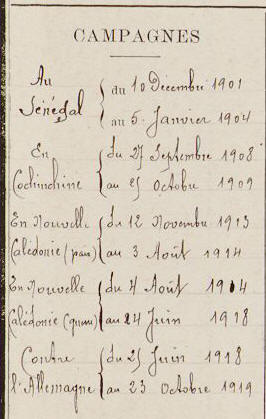 CAMPAGNES
Au { au 10 Décembre 1901
Sénégal { au 5 Janvier 1904
En { du 27 Septembre 1908
Cochinchine { au 25 Octobre 1909
En Nouvelle { du 12 Novembre 1913
Calédonie (paix) { au 3 Août 1914
En Nouvelle { du 4 Août 1914
Calédonie (guerre) { au 24 Juin 1918
Contre { du 25 Juin 1918
l'Allemagne { au 23 Octobre 1919